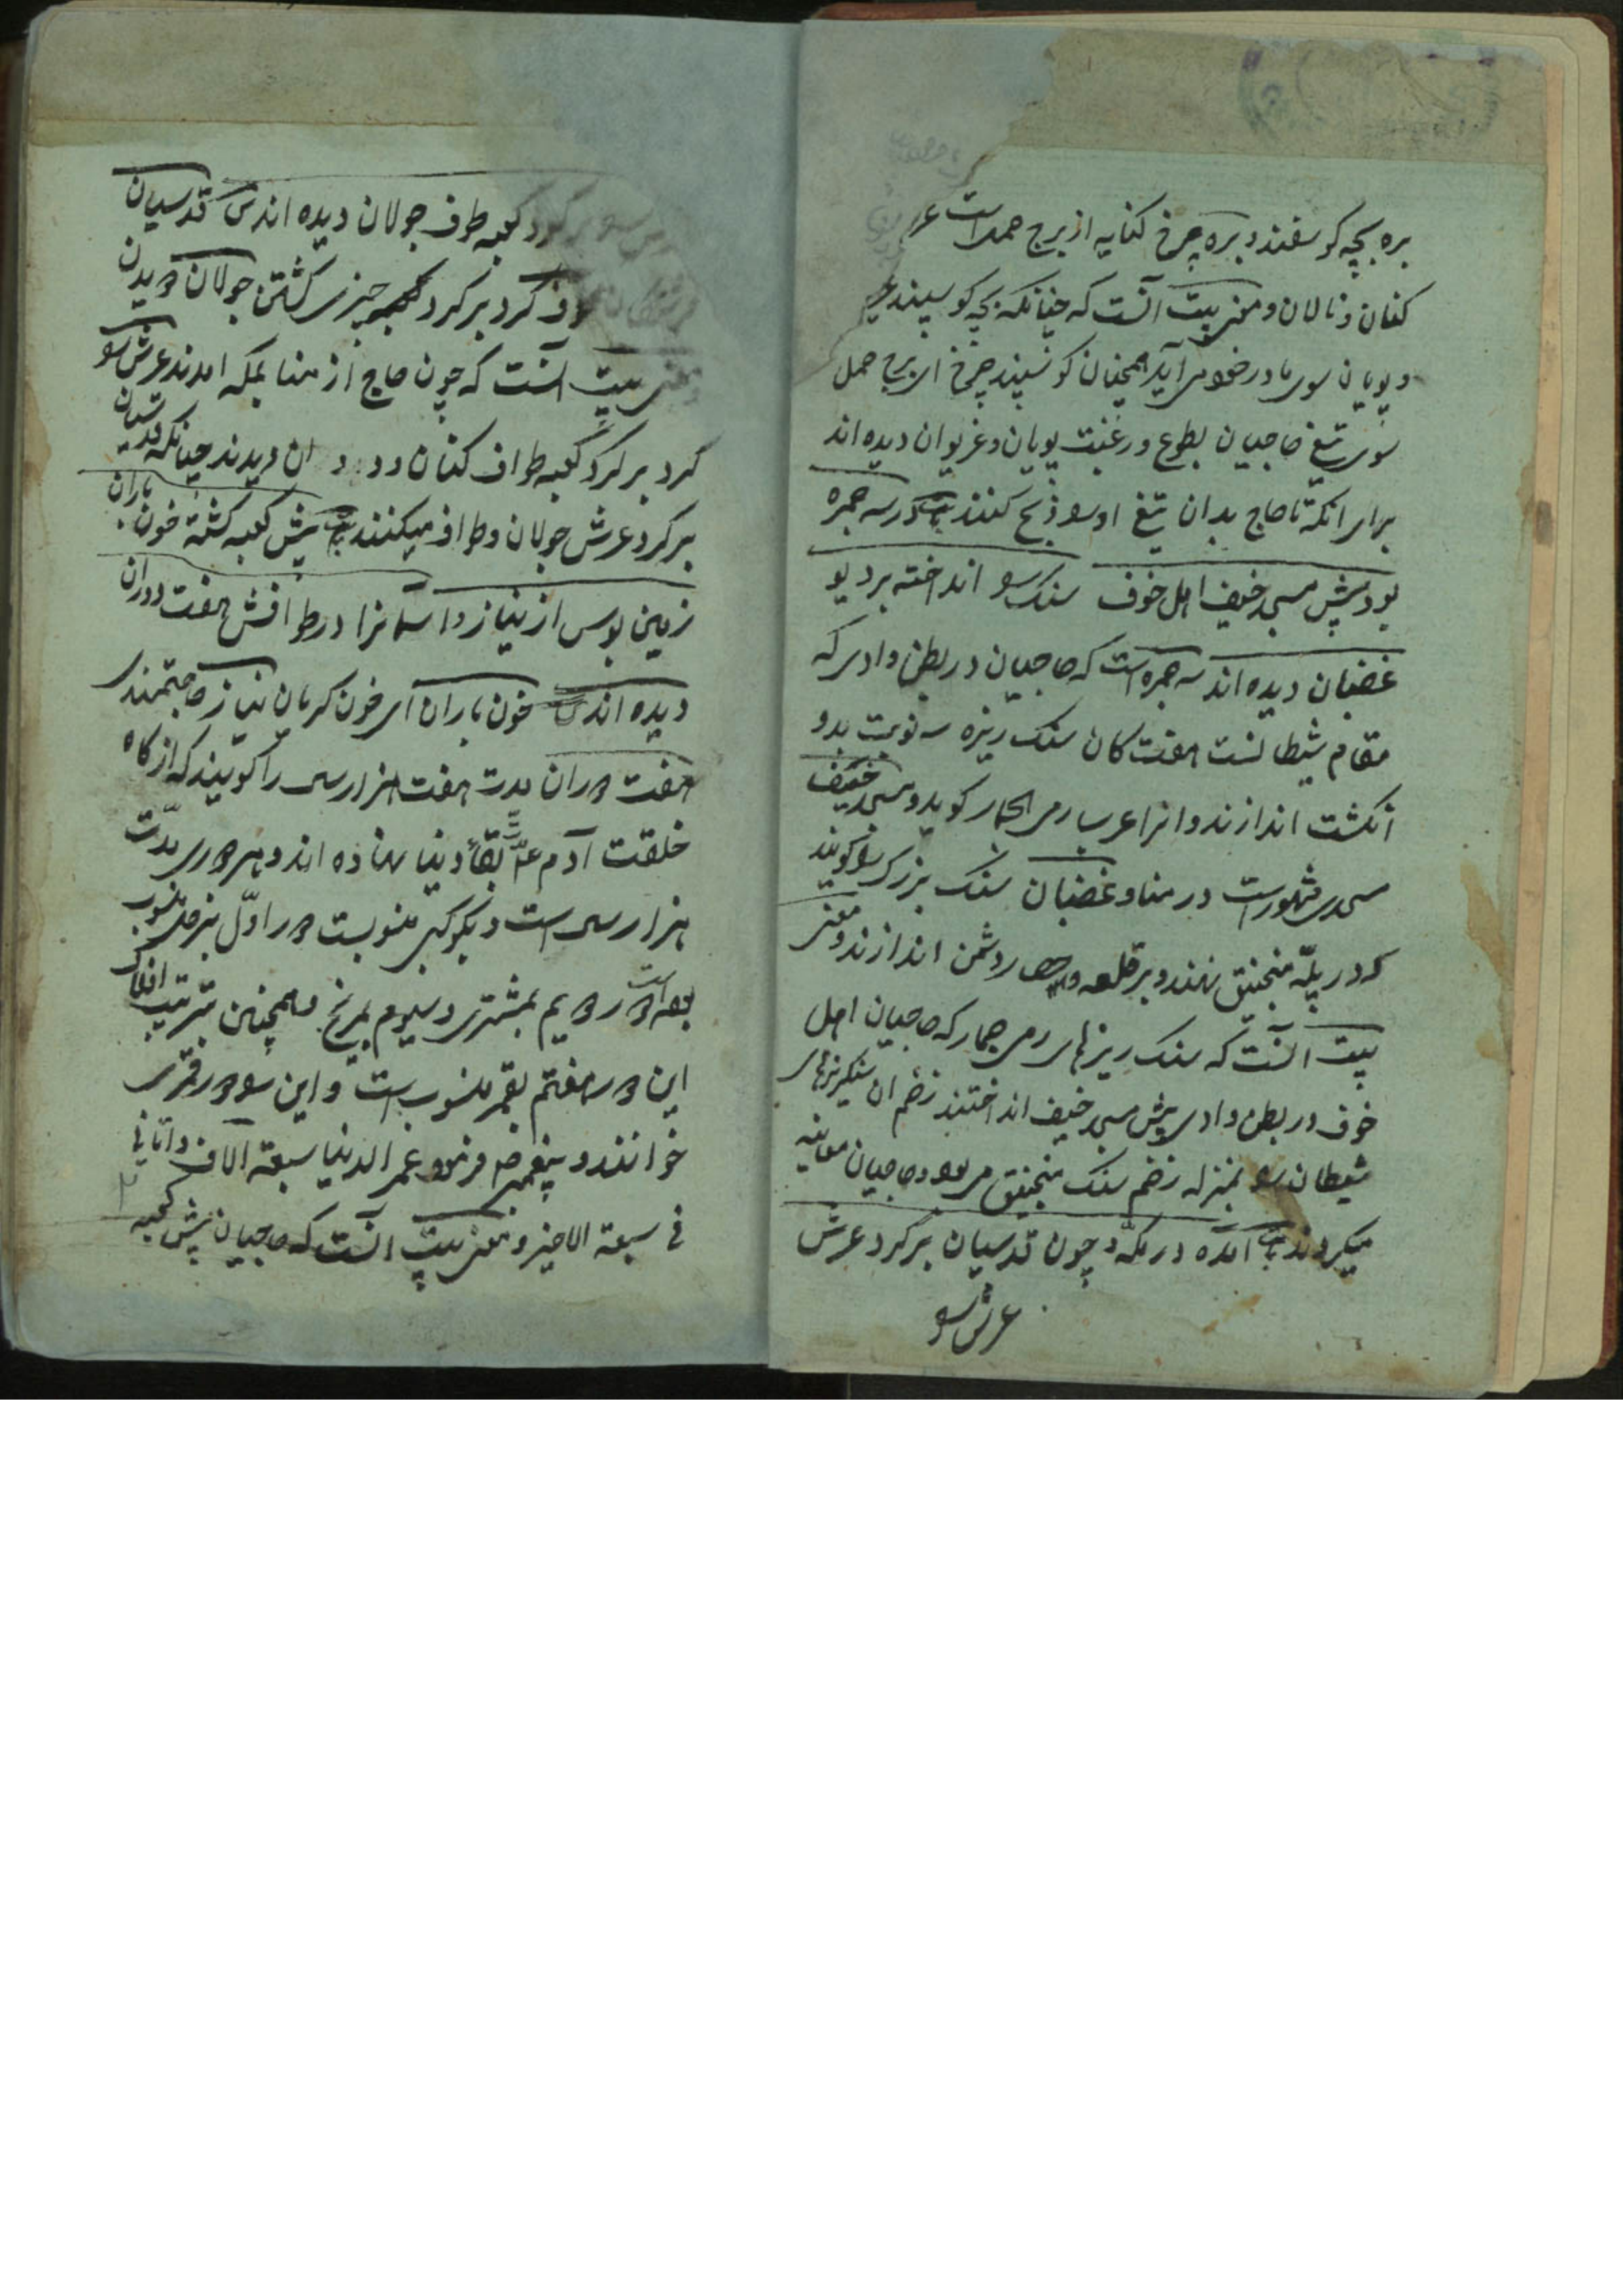 بره بچه کوسفند و بره چرخ کنایه از برج حمل است
کنان و نالان و معنی بیت آنست که چنانکه بچه کوسپند
و پویان سوی مادر خود می آید همچنان کوسپند چرخ ای برج حمل
سوی تیغ حاجیان بطوع و رغبت پویان و غریوان دیده اند
برای انکه تا حاج بدان تیغ او را ذبح کنند ب در سه جمره
بود پیش مسجد خیف اهل خوف سنک را انداخته بر دیو
غضبان دیده اند سه جمره است که حاجیان در بطن وادی که
مقام شیطانست هفت کان سنک ریزه سه نوبت بدو
انکشت اندازند و انرا عرب رمی الجمار کوید و مسجد خیف
مسجدی مشهور است در منا و غضبان سنک بزرک را کویند
که در پلّه منجنیق نهند و بر قلعه و حصار دشمن اندازند و معنی
بیت آنست که سنک ریزهای رمی جمار که حاجیان اهل
خوف در بطن وادی پیش مسجد خیف انداختند زخم ان سنکریزهای
شیطان را بمنزله زخم سنک منجنیق می بود و حاجیان معاینه
میکردند ب آمده در مکّه و چون قدسیان بر کرد عرش
عرش را
بر کرد کعبه طوف جولان دیده اند ش قدسیان
طوف کرد بر کرد چیزی کشتن جولان دویدن
معنی بیت آنست که چون حاج از منا بمکه امدند عرش را
کرد بر کرد کعبه طواف کنان ان دیدند چنانکه قدسیان
بر کرد عرش جولان و طواف میکنند ب پیش کعبه کشته خون باران
زمین بوس از نیاز و آسمانرا در طوافش هفت دوران
دیده اند ش خون باران ای خون کریان نیاز حاجتمندی
هفت دوران مدت هفت هزار سال را کویند که از کاه
خلقت آدم ع تا بقاء دنیا نهاده اند و هر دوری مدّت
هزار سال است و بکوکبی منسوبست دور اوّل بزحل منسوب
بود است دور دویم بمشتری و سیوم بمریخ و همچنین بترتیب افلاک
این دور هفتم بقمر منسوب است و این را دور قمری
خوانند و پیغمبر ص فرمود عمر الدنیا سبعة الاف و انا فی
فی سبعة الاخیر و معنی بیت آنست که حاجیان پیش کعبه